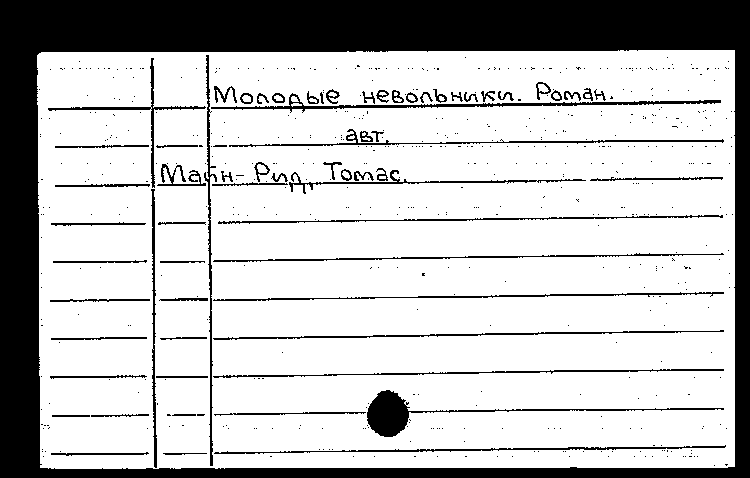 Молодые невольники. Роман.
авт.
Майн-Рид, Томас.